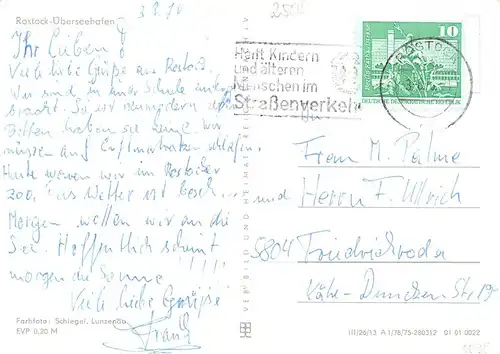 Rostock-Überseehafen
3.8.80
Ihr Lieben!
Viele liebe Grüße aus Rostock.
Wir sind in einer Schule unterge-
bracht. Sie ist
Betten haben sie keine, wir
müssen auf Luftmatratzen schlafen.
Heute waren wir im Rostocker
Zoo, das Wetter ist
Morgen wollen wir an die
See. Hoffentlich scheint
morgen die Sonne!!!!
Viele liebe Grüße
Frank
Farbfoto: Schlegel, Lunzenau
EVP 0,20 M
VERLAG BILD UND HEIMAT
Helft Kindern
und älteren
Menschen im
Straßenverkehr
ROSTOCK
10
DEUTSCHE DEMOKRATISCHE REPUBLIK
An
Frau M. Palme
und Herrn F. Ullrich
5804 Friedrichroda
Käte-Duncker-Str. 19
III/26/13 A 1/78/75-280312 01 01 0022